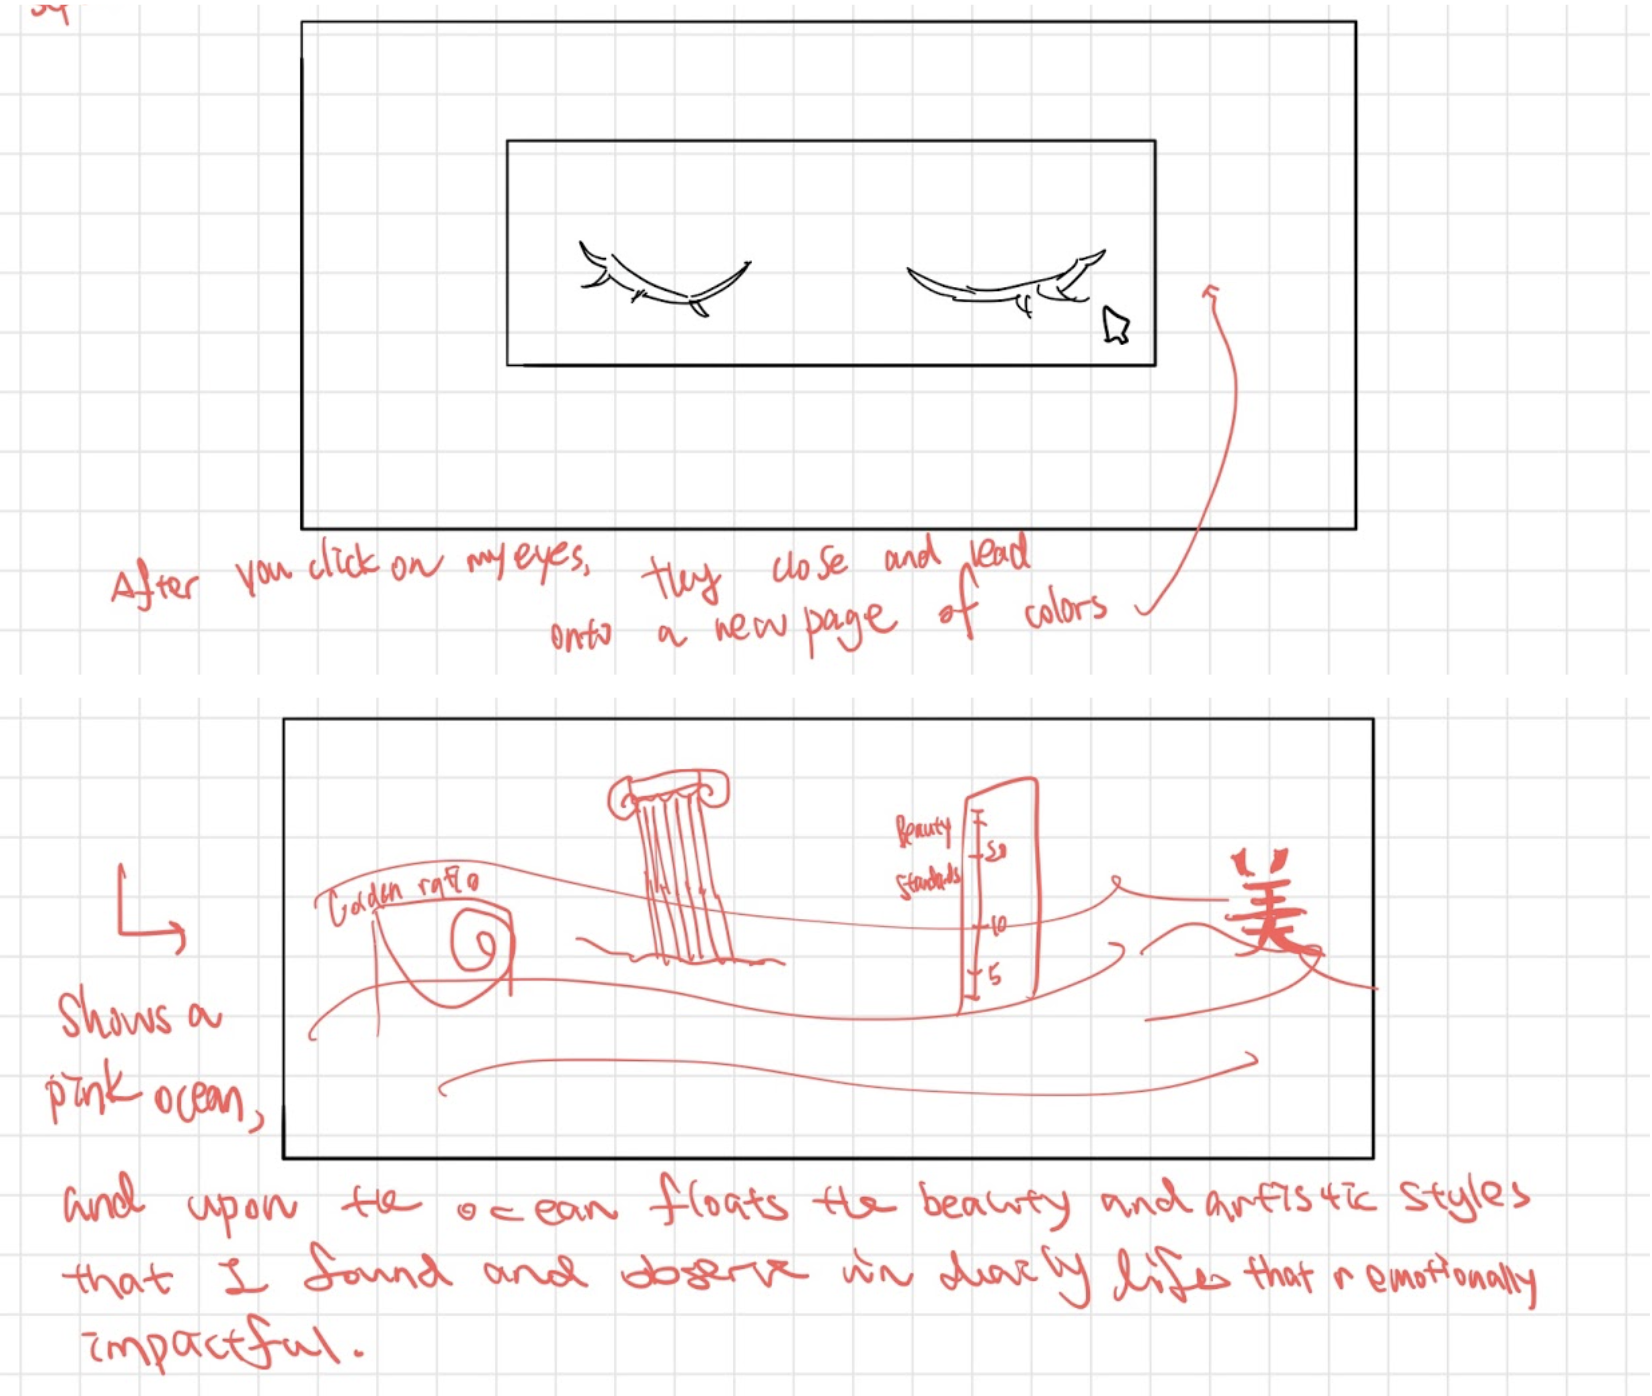 After you click on my eyes, they close and lead
onto a new page of colors
Golden ratio
Beauty
Standards
20
10
5
美
Shows a
pink ocean,
and upon the ocean floats the beauty and artistic styles
that I found and observe in daily lifes that r emotionally
impactful.